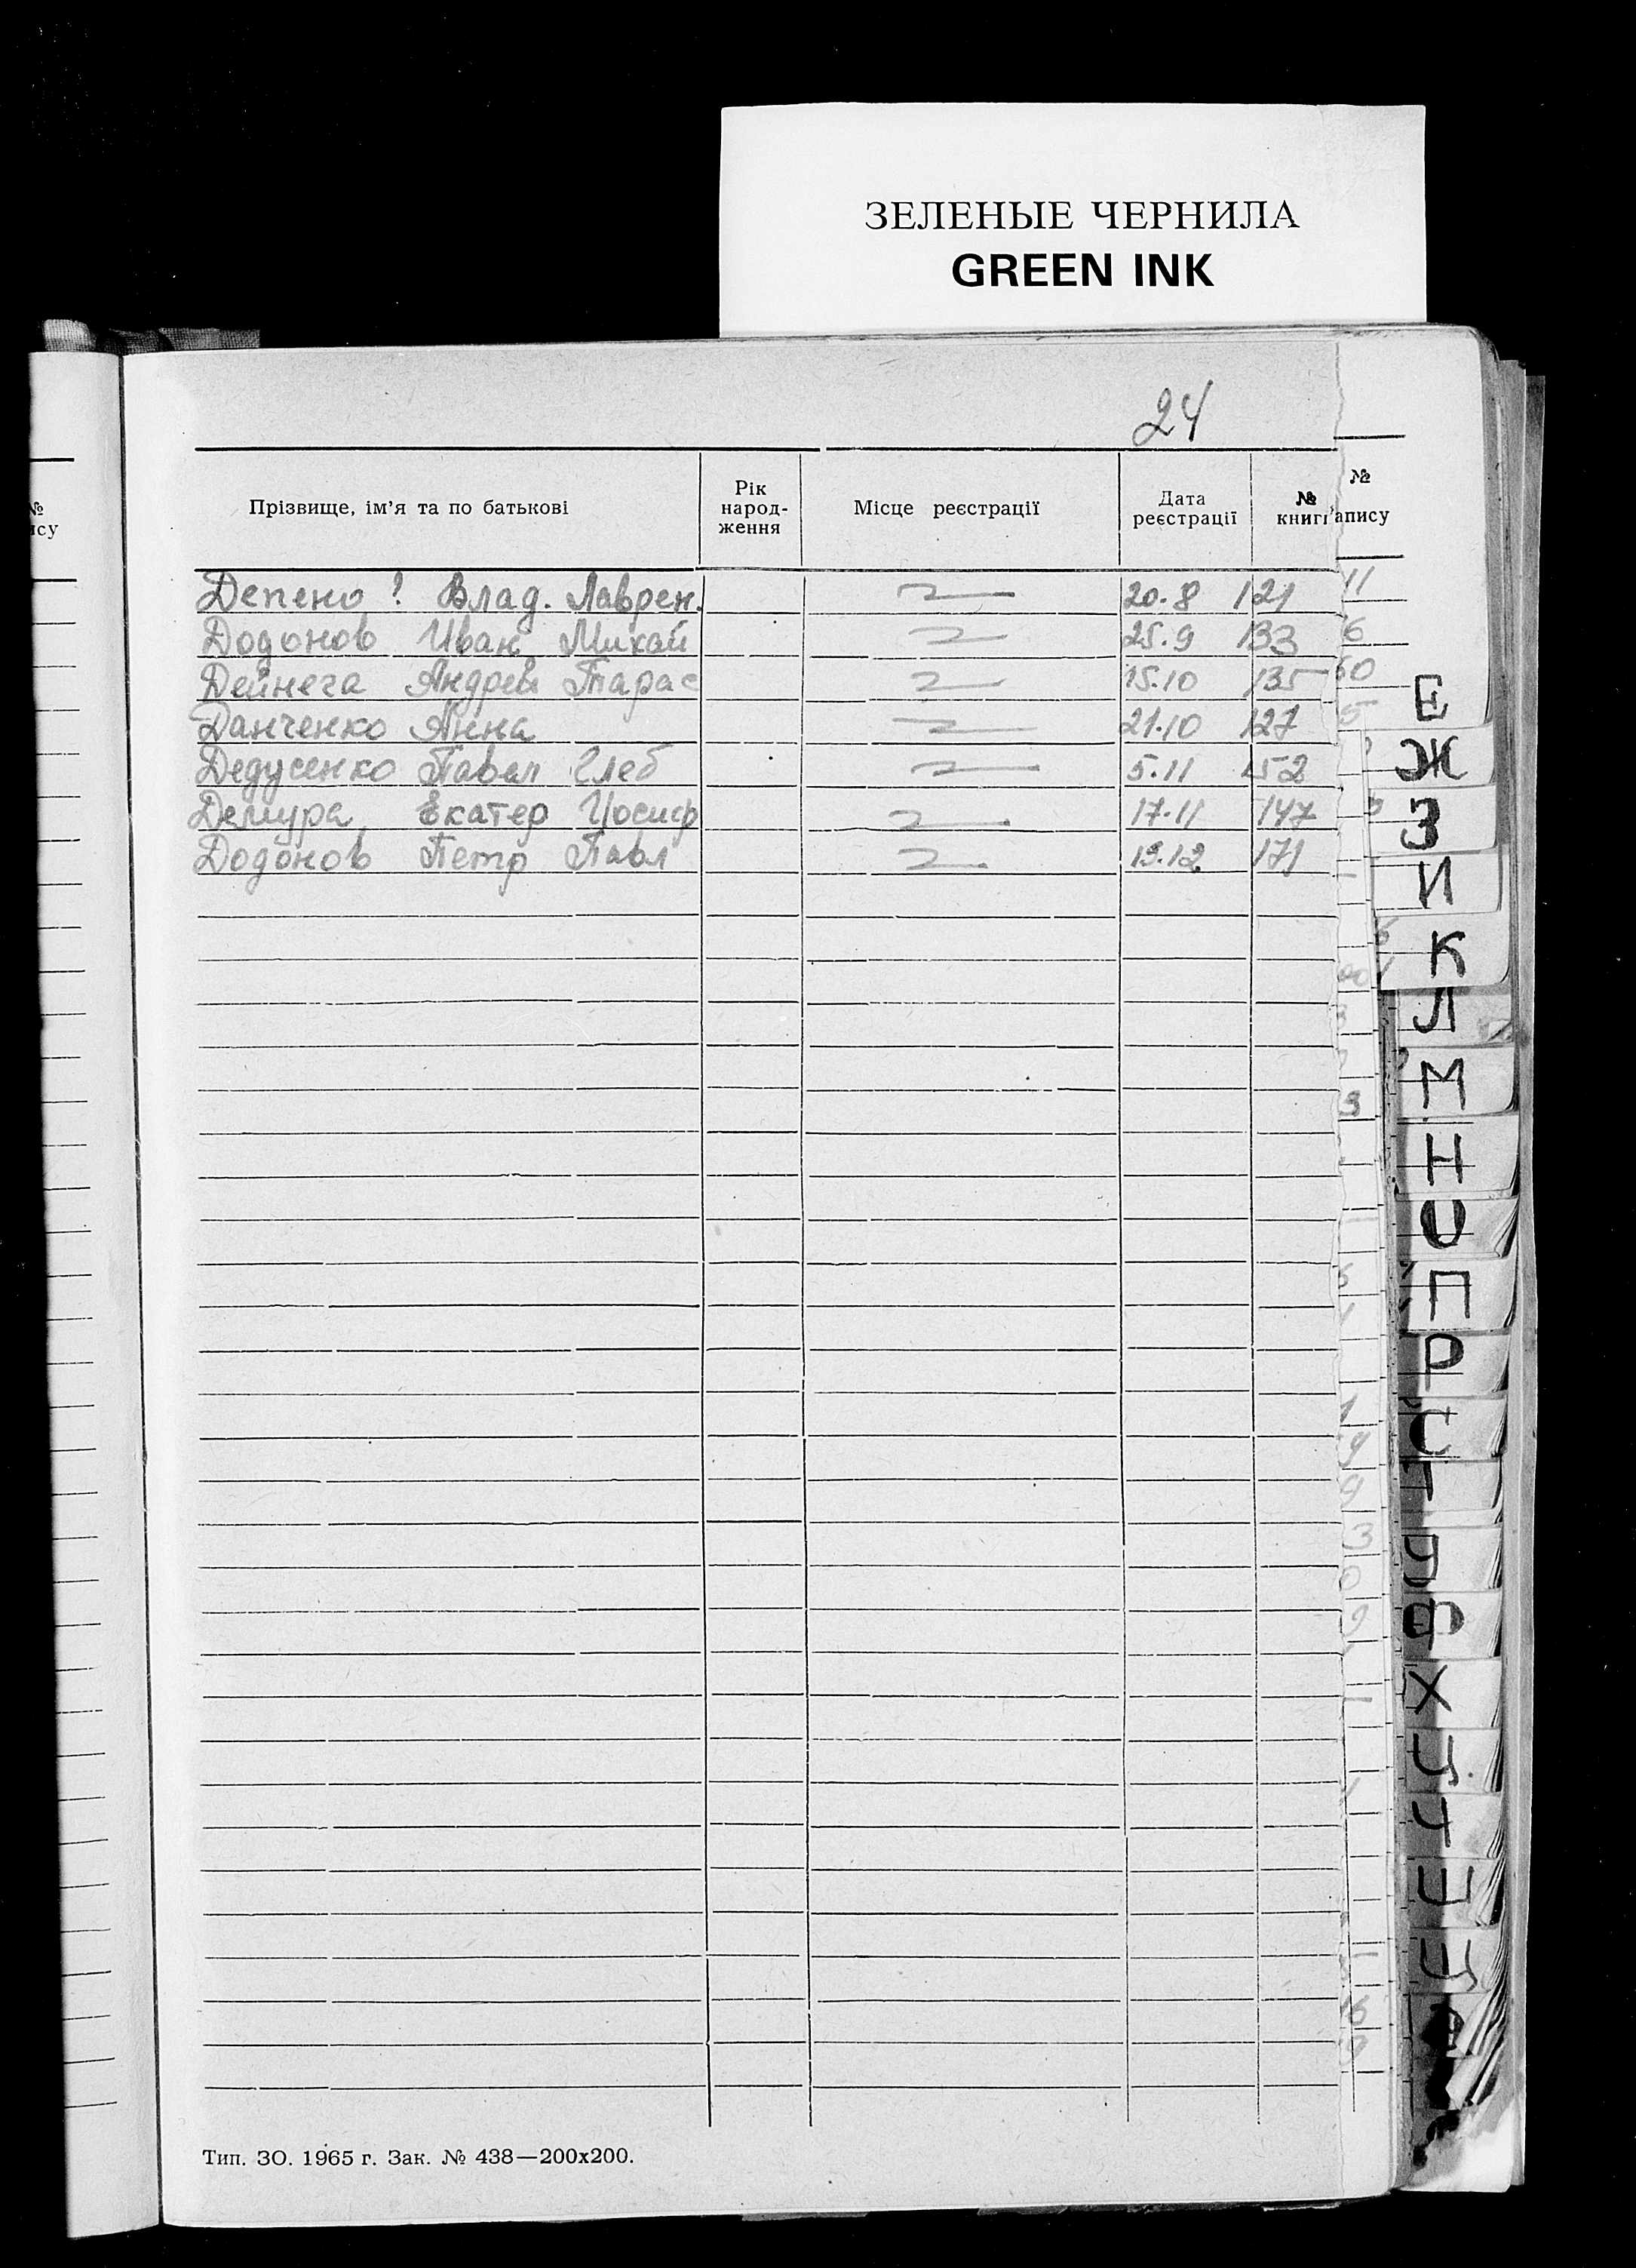 ЗЕЛЕНЫЕ ЧЕРНИЛА
GREEN INK
24
Прізвище, ім'я та по батькові Рік народження Місце реєстрації Дата реєстрації № книги № апису
Депено ? Влад. Лаврен. 20.8 121 11
Додонов Иван Михай 25.9 133 6
Дейнега Андрей Тарас 15.10 135 60
Данченко Анна 21.10 127 5
Дедусенко Павел Глеб 5.11 152
Демура Екатер Иосиф 17.11 147
Додонов Петр Павл 13.12 171
Е
Ж
З
И
К
Л
М
Н
О
П
Р
С
Т
У
Ф
Х
Ц
Ч
Ш
Щ
Тип. ЗО. 1965 г. Зак. № 438—200х200.